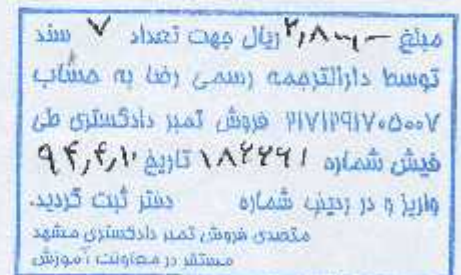 مبلغ ۲,۸۰۰,۰۰۰ ریال جهت تعداد ۷ سند
توسط دارالترجمه رسمی رضا به حساب
۲۱۷۱۲۹۱۷۰۵۰۰۷ فروش تمبر دادگستری طی
فیش شماره ۱۸۲۲۶۱ تاریخ ۹۴,۴,۱۰
واریز و در ردیف شماره دفتر ثبت گردید.
متصدی فروش تمبر دادگستری مشهد
مستقر در معاونت آموزش